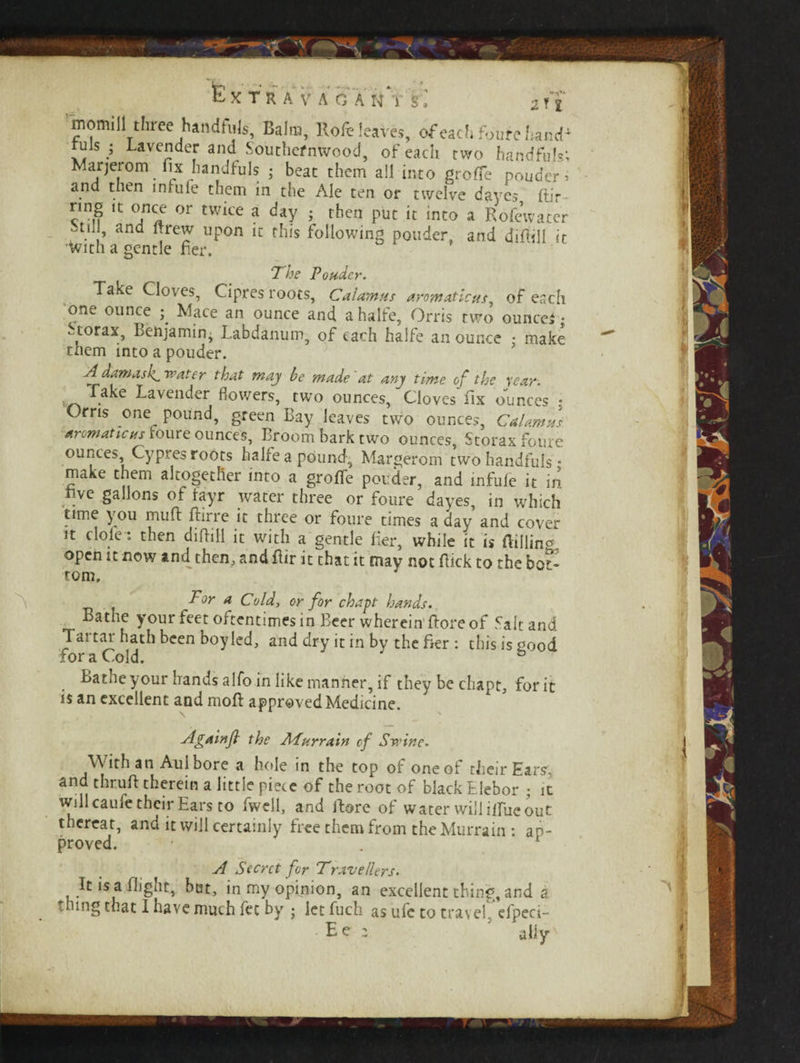 EXTRAVAGANTS. 211
momill three handfuls, Balm, Roſe leaves, of each foure hand-
fuls ; Lavender and Southernwood, of each two handfuls;
Marjerom ſix handfuls ; beat them all into groſſe pouder ;
and then infuſe them in the Ale ten or twelve dayes, ſtir-
ring it once or twice a day ; then put it into a Roſewater
Still, and ſtrew upon it this following pouder, and diſtill it
with a gentle fier.
The Pouder.
Take Cloves, Cipres roots, Calamus aromaticus, of each
one ounce ; Mace an ounce and a halfe, Orris two ounces ;
Storax, Benjamin, Labdanum, of each halfe an ounce ; make
them into a pouder.
A damask water that may be made at any time of the year.
Take Lavender flowers, two ounces, Cloves ſix ounces ;
Orris one pound, green Bay leaves two ounces, Calamus
aromaticus foure ounces, Broom bark two ounces, Storax foure
ounces, Cypres roots halfe a pound, Margerom two handfuls ;
make them altogether into a groſſe pouder, and infuſe it in
five gallons of fayr water three or foure dayes, in which
time you muſt ſtirre it three or foure times a day and cover
it cloſe : then diſtill it with a gentle fier, while it is ſtilling
open it now and then, and ſtir it that it may not ſtick to the bot-
tom.
For a Cold, or for chapt hands.
Bathe your feet oftentimes in Beer wherein ſtore of Salt and
Tartar hath been boyled, and dry it in by the fier : this is good
for a Cold.
Bathe your hands alſo in like manner, if they be chapt, for it
is an excellent and moſt approved Medicine.
Againſt the Murrain of Swine.
With an Aul bore a hole in the top of one of their Ears,
and thruſt therein a little piece of the root of black Elebor ; it
will cauſe their Ears to ſwell, and ſtore of water will iſſue out
thereat, and it will certainly free them from the Murrain : ap-
proved.
A Secret for Travellers.
It is a ſlight, but, in my opinion, an excellent thing, and a
thing that I have much ſet by ; let ſuch as uſe to travel, eſpeci-
E e 2 ally